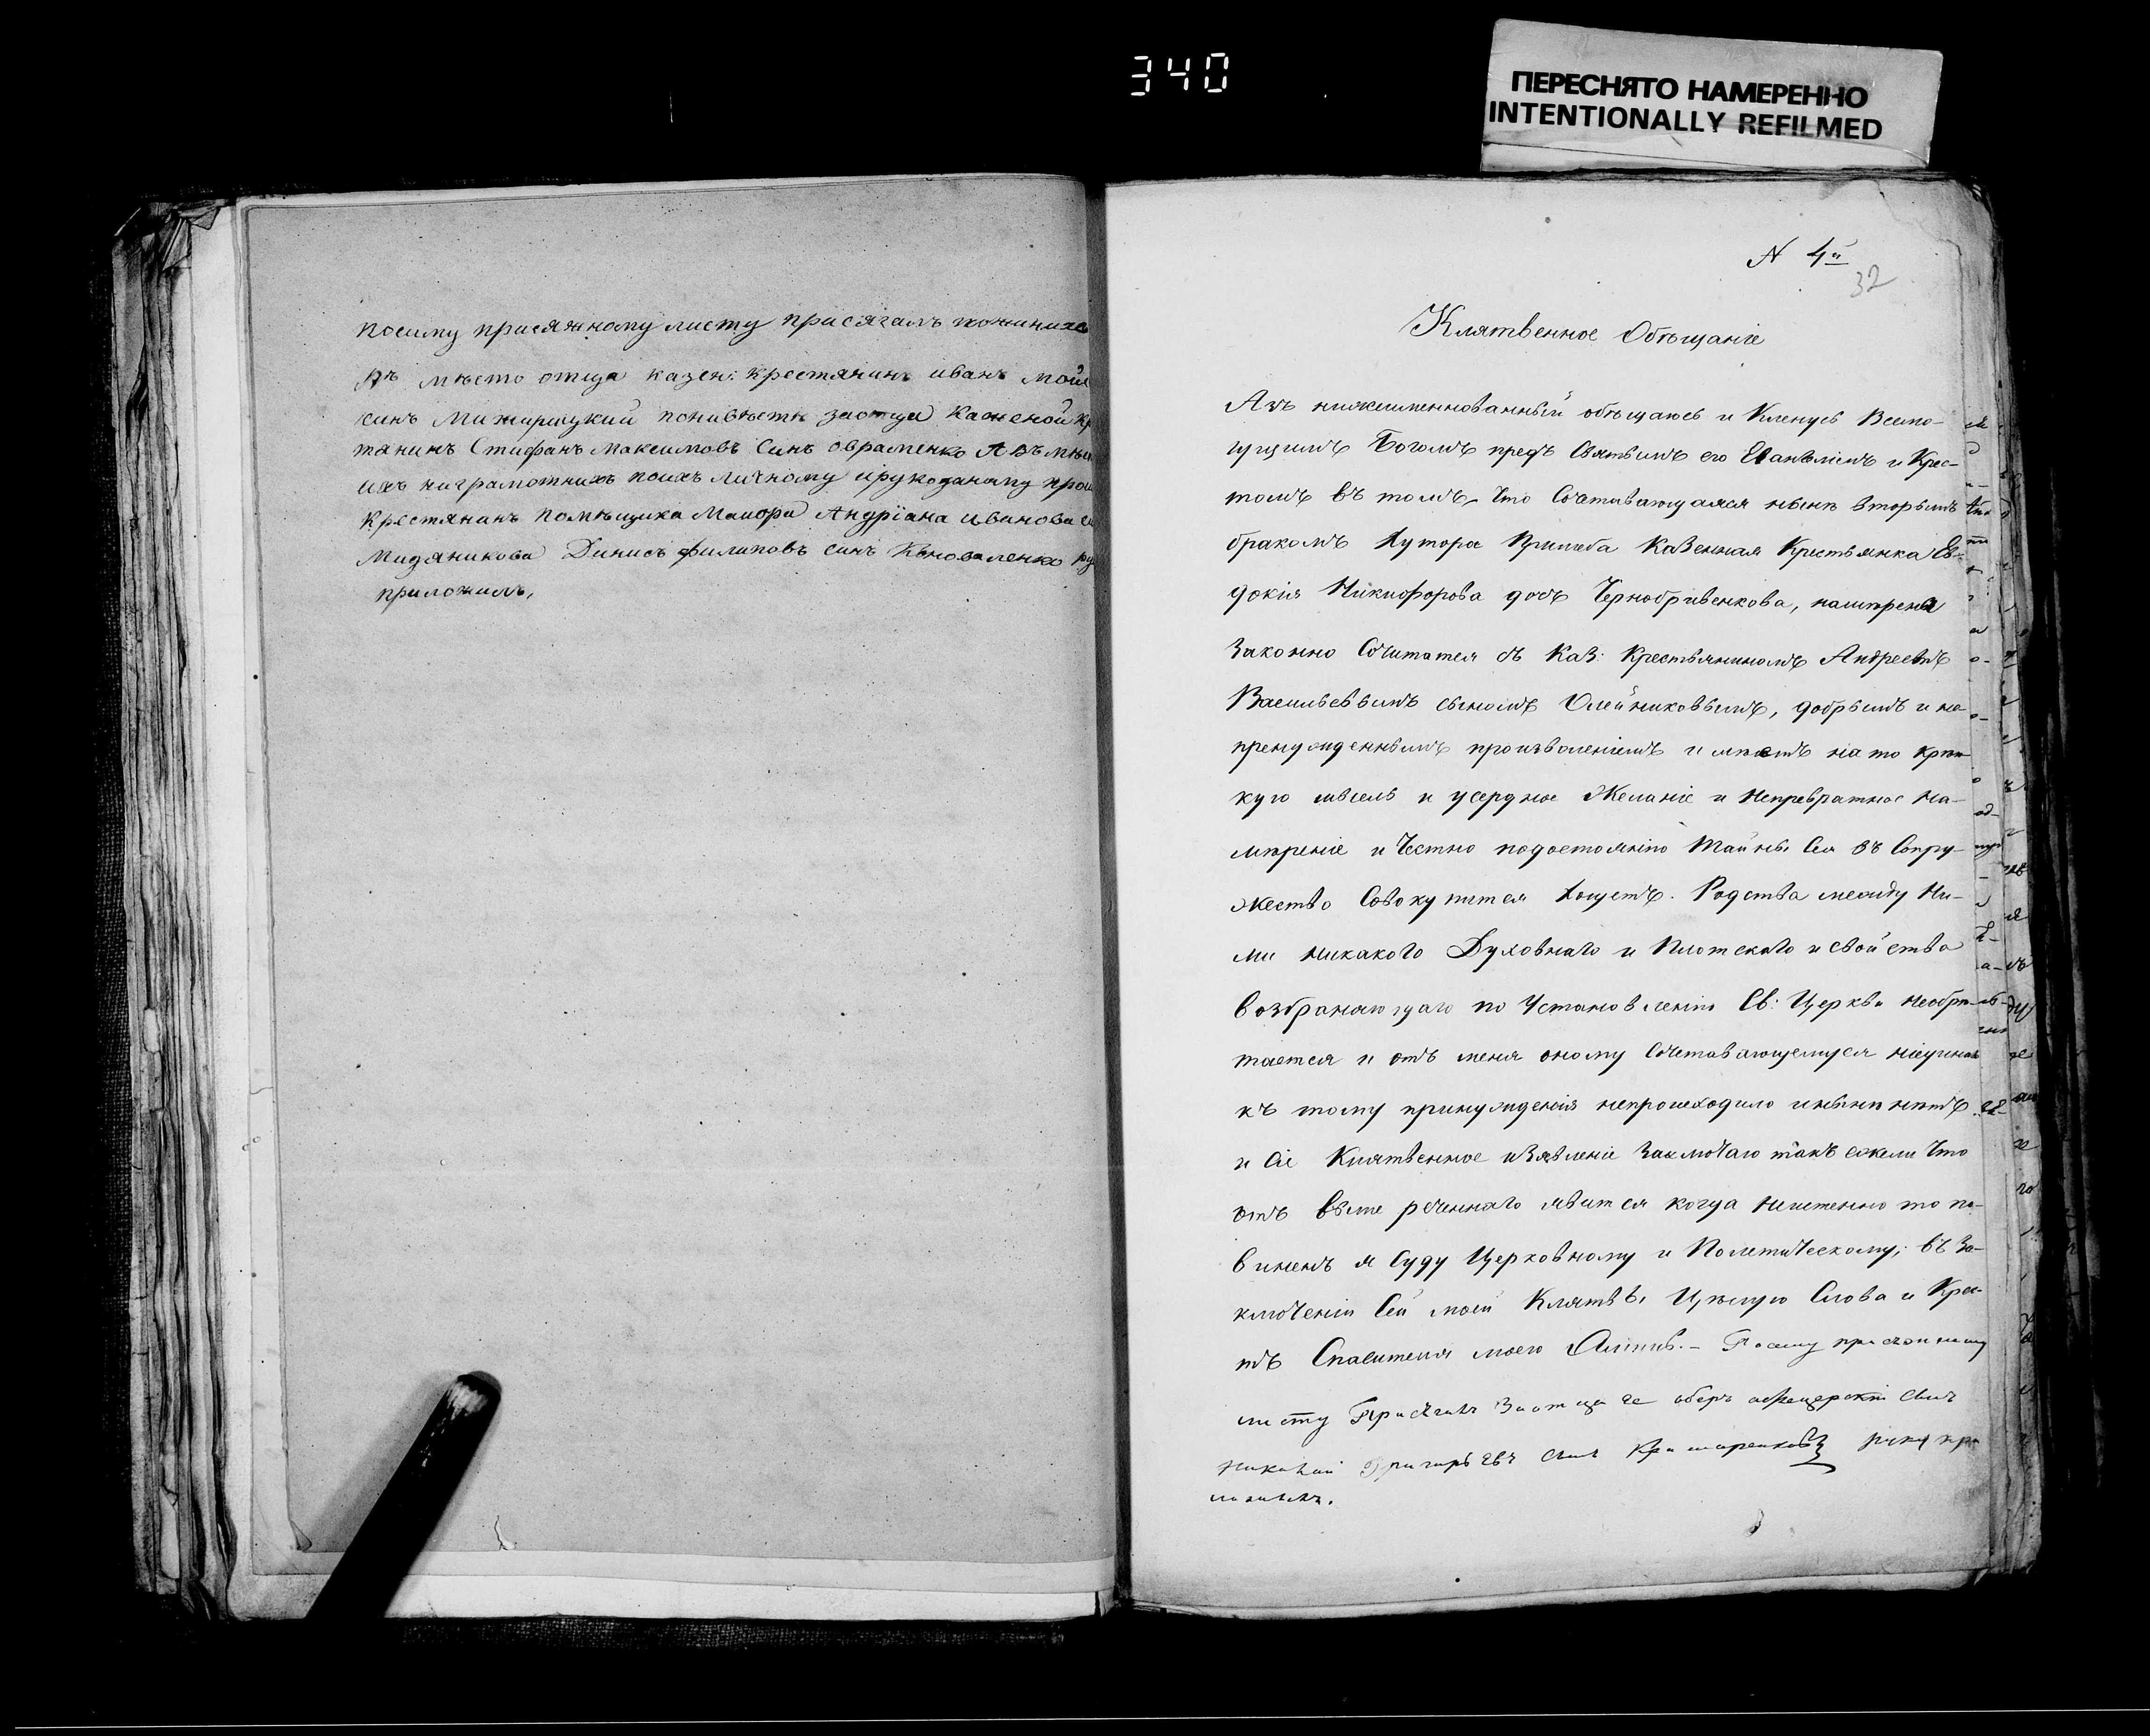 340
ПЕРЕСНЯТО НАМЕРЕННО
INTENTIONALLY REFILMED
посиму присяжному листу присягалъ
въ мѣсто отца казен: крестянинъ иванъ
синъ Мижирицкий за отца Казеной
тянинъ Стифанъ Максимовъ Синъ Овраменко
ихъ ниграмотнихъ поихъ личному ирукоданому
Крестянинъ помѣщика Маиора Андрїана иванова
Мидяникова Динисъ филиповъ синъ Коноваленко
приложилъ,
N 4й
32
Клятвенное Обѣщаніе
Азъ нижеименнованный обѣщаюсь и Кленусь Всемо-
гущимъ Богомъ предъ Святымъ его Еванѣліемъ и Крес-
томъ въ томъ, что Сочетавающаяся нынѣ вторымъ
бракомъ Хутора Казенная Крестьянка Ев-
докія Никифорова дочь Чернобривенкова, намѣрена
Законно Сочитатся съ Каз: Крестьяниномъ Андреемъ
Васильевымъ сыномъ Олейниковымъ, добрымъ и не
пренужденнымъ произволеніемъ и имѣетъ на то крѣп-
кую мысль и усердное Желаніе и Непревратное На-
мѣреніе и Честно подостоянію Тайны Сея въ Супру-
жество Совокупится хощетъ. Родства между Ни-
ми никакого Духовнаго и Плотскаго и свойства
возбраняющаго по Установленію Св: Церкви необрѣ-
тается и отъ меня оному Сочетавающемуся
къ тому принужденія непроисходило инынѣ нѣтъ.
и Сіе Клятвенное изявленіе Заключаю такъ ежели что
отъ выше реченнаго явится когда то по-
виненъ я Суду Церковному и Полетическому; въ За-
ключеніи Сей моей Клятвы Цѣлую Слова и Крес-
тъ Спасителя моего Аминь. – Посему присяжному
листу Присягалъ За отца оберъ офицерскій сынъ
Николай Григорьевъ сынъ руку при
ложилъ.